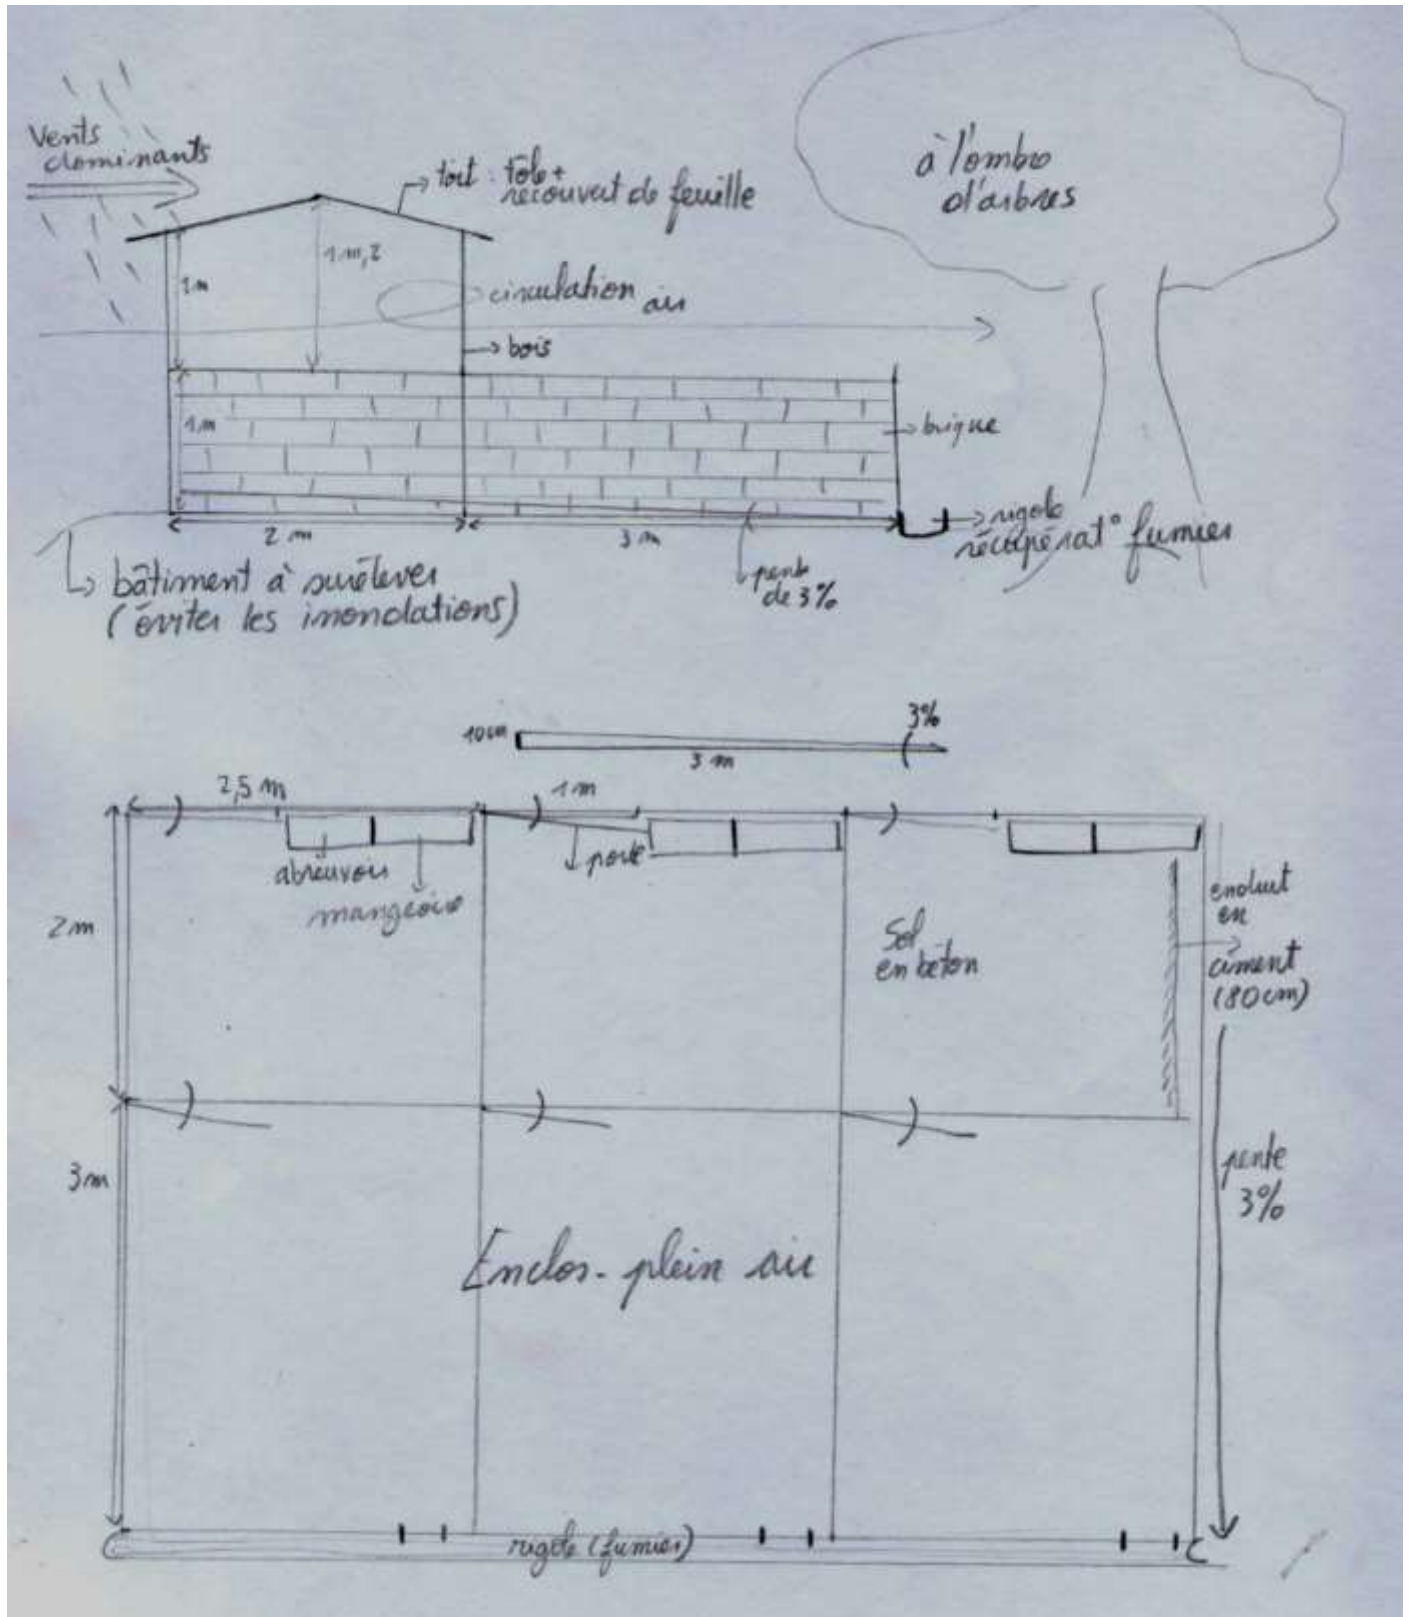 Vents
dominants
toit : tole +
recouvert de feuille
à l'ombre
d'arbres
1m,2
1m
circulation air
bois
1m
brique
2 m
3 m
rigole
récupérat° fumier
pente
de 3%
bâtiment à surélever
(éviter les inondations)
3%
10cm
3 m
2,5 m
1m
abreuvoir
mangeoire
porte
enduit
en
ciment
(80cm)
2m
Sol
en béton
3m
pente
3%
Enclos - plein air
rigole (fumier)